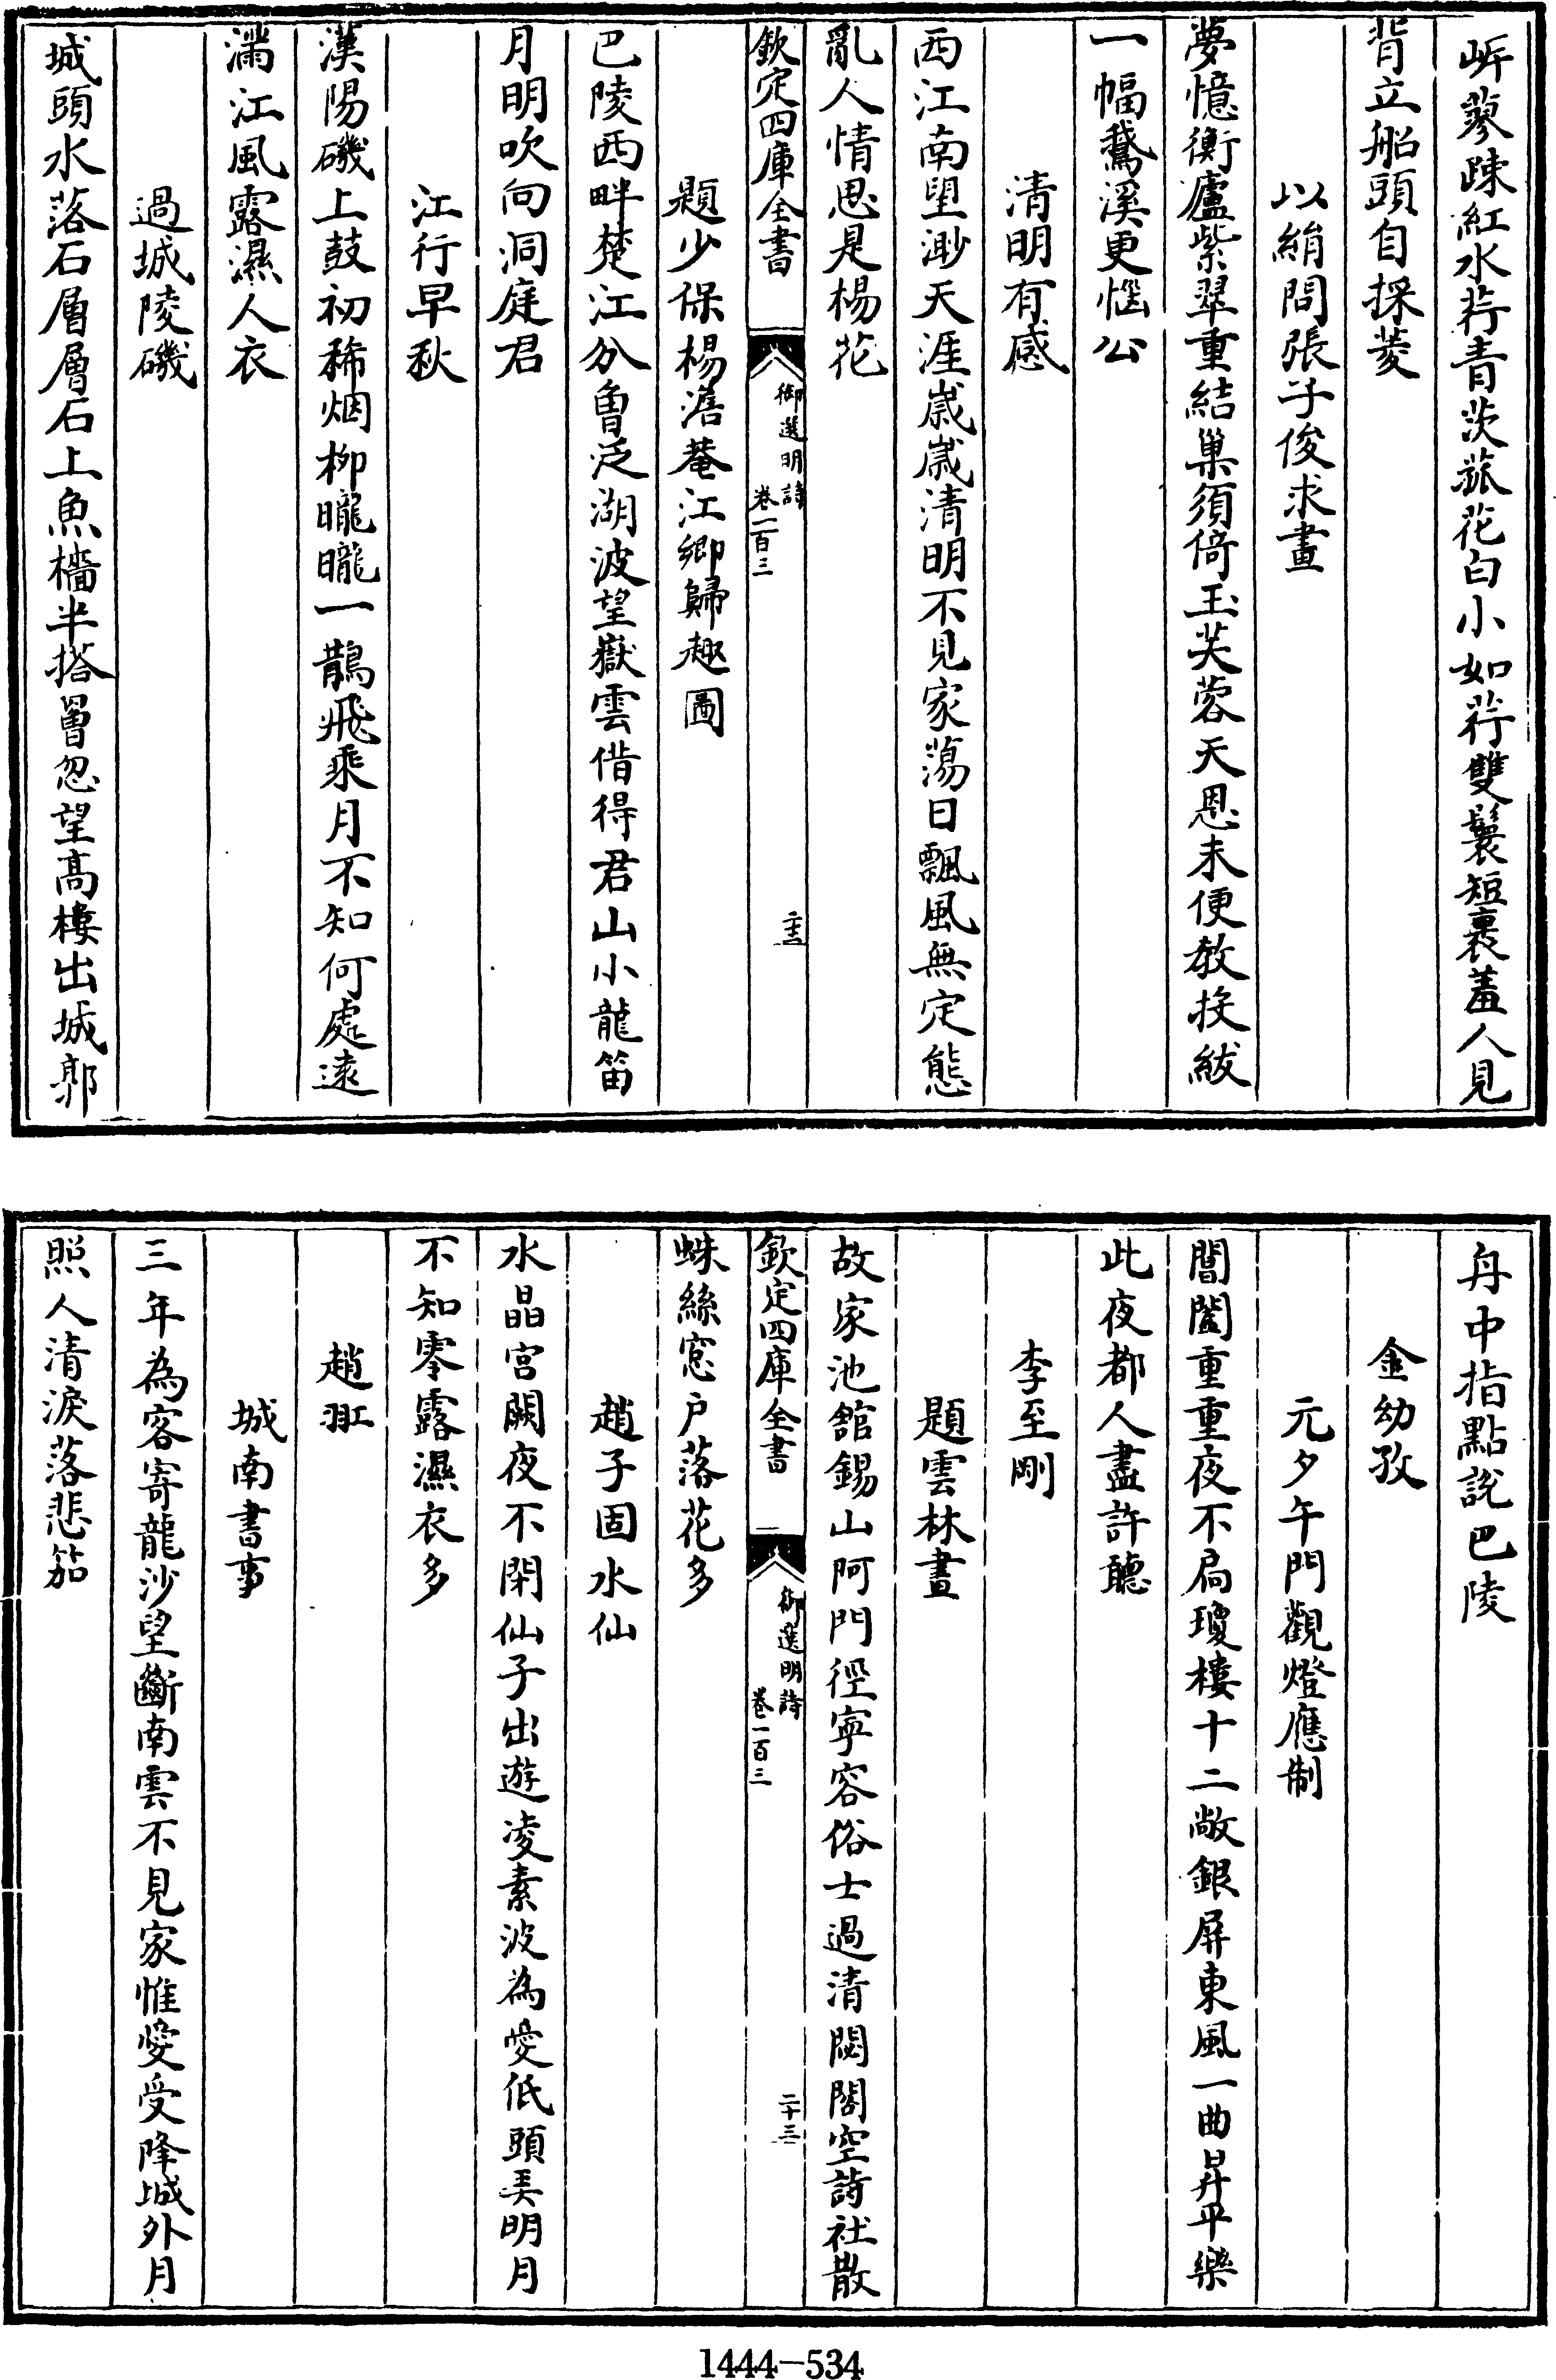 㟁蓼疎紅水荇青茨菰花白小如荇雙鬟短裏羞人見
背立船頭自採菱
以絹問張子俊求畫
夢憶衡廬紫翠重結巢須倚玉芙蓉天恩未便教投紱
一幅鵞溪更惱公
清明有感
西江南望渺天涯嵗嵗清明不見家蕩日飄風無定態
亂人情思是楊花
欽定四庫全書
御選明詩
卷一百三
二十三
題少保楊澹菴江鄉歸趣圖
巴陵西畔楚江分曾泛湖波望嶽雲借得君山小龍笛
月明吹向洞庭君
江行早秋
漢陽磯上鼓初稀烟柳曨曨一鵲飛乘月不知何處逺
滿江風露濕人衣
過城陵磯
城頭水落石層層石上魚檣半搭罾忽望髙樓出城郭
舟中指點說巴陵
金幼孜
元夕午門觀燈應制
閶闔重重夜不扄瓊樓十二敞銀屏東風一曲昇平樂
此夜都人盡許聽
李至剛
題雲林畫
故家池舘錫山阿門徑寧容俗士過清閟閣空詩社散
欽定四庫全書
御選明詩
卷一百三
二十三
蛛絲窓户落花多
趙子固水仙
水晶宫闕夜不閉仙子出遊凌素波為愛低頭美明月
不知零露濕衣多
趙䎕
城南書事
三年為客寄龍沙望斷南雲不見家惟愛受降城外月
照人清淚落悲笳
1444-534